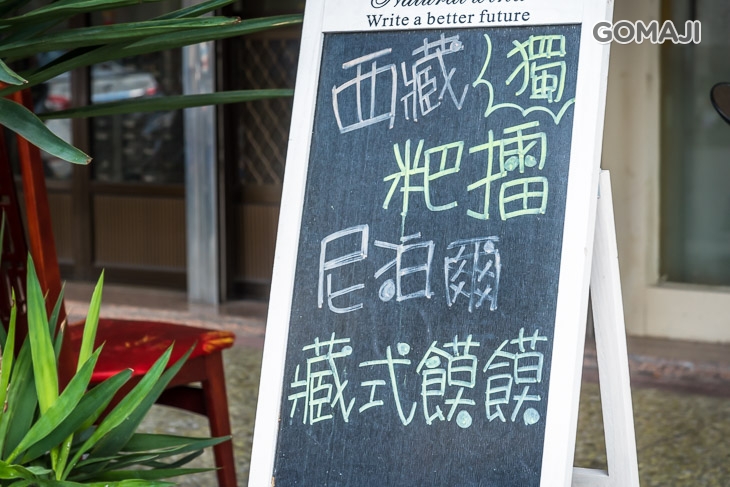 Write a better future
GOMAJI
西藏 獨
粑擂
尼泊爾
藏式饃饃